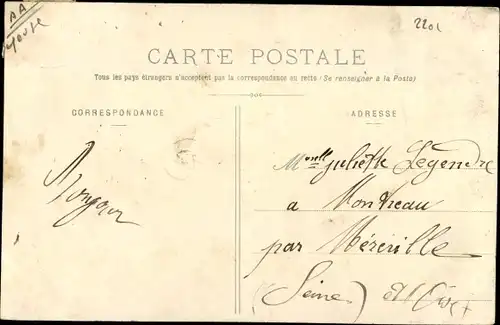 AA
2201
CARTE POSTALE
Tous les pays étrangers n'acceptent pas la correspondance au recto (Se renseigner à la Poste)
CORRESPONDANCE
ADRESSE
Bonjour
Melle Juliette Legendre
a
par Méréville
(Seine) et Oise